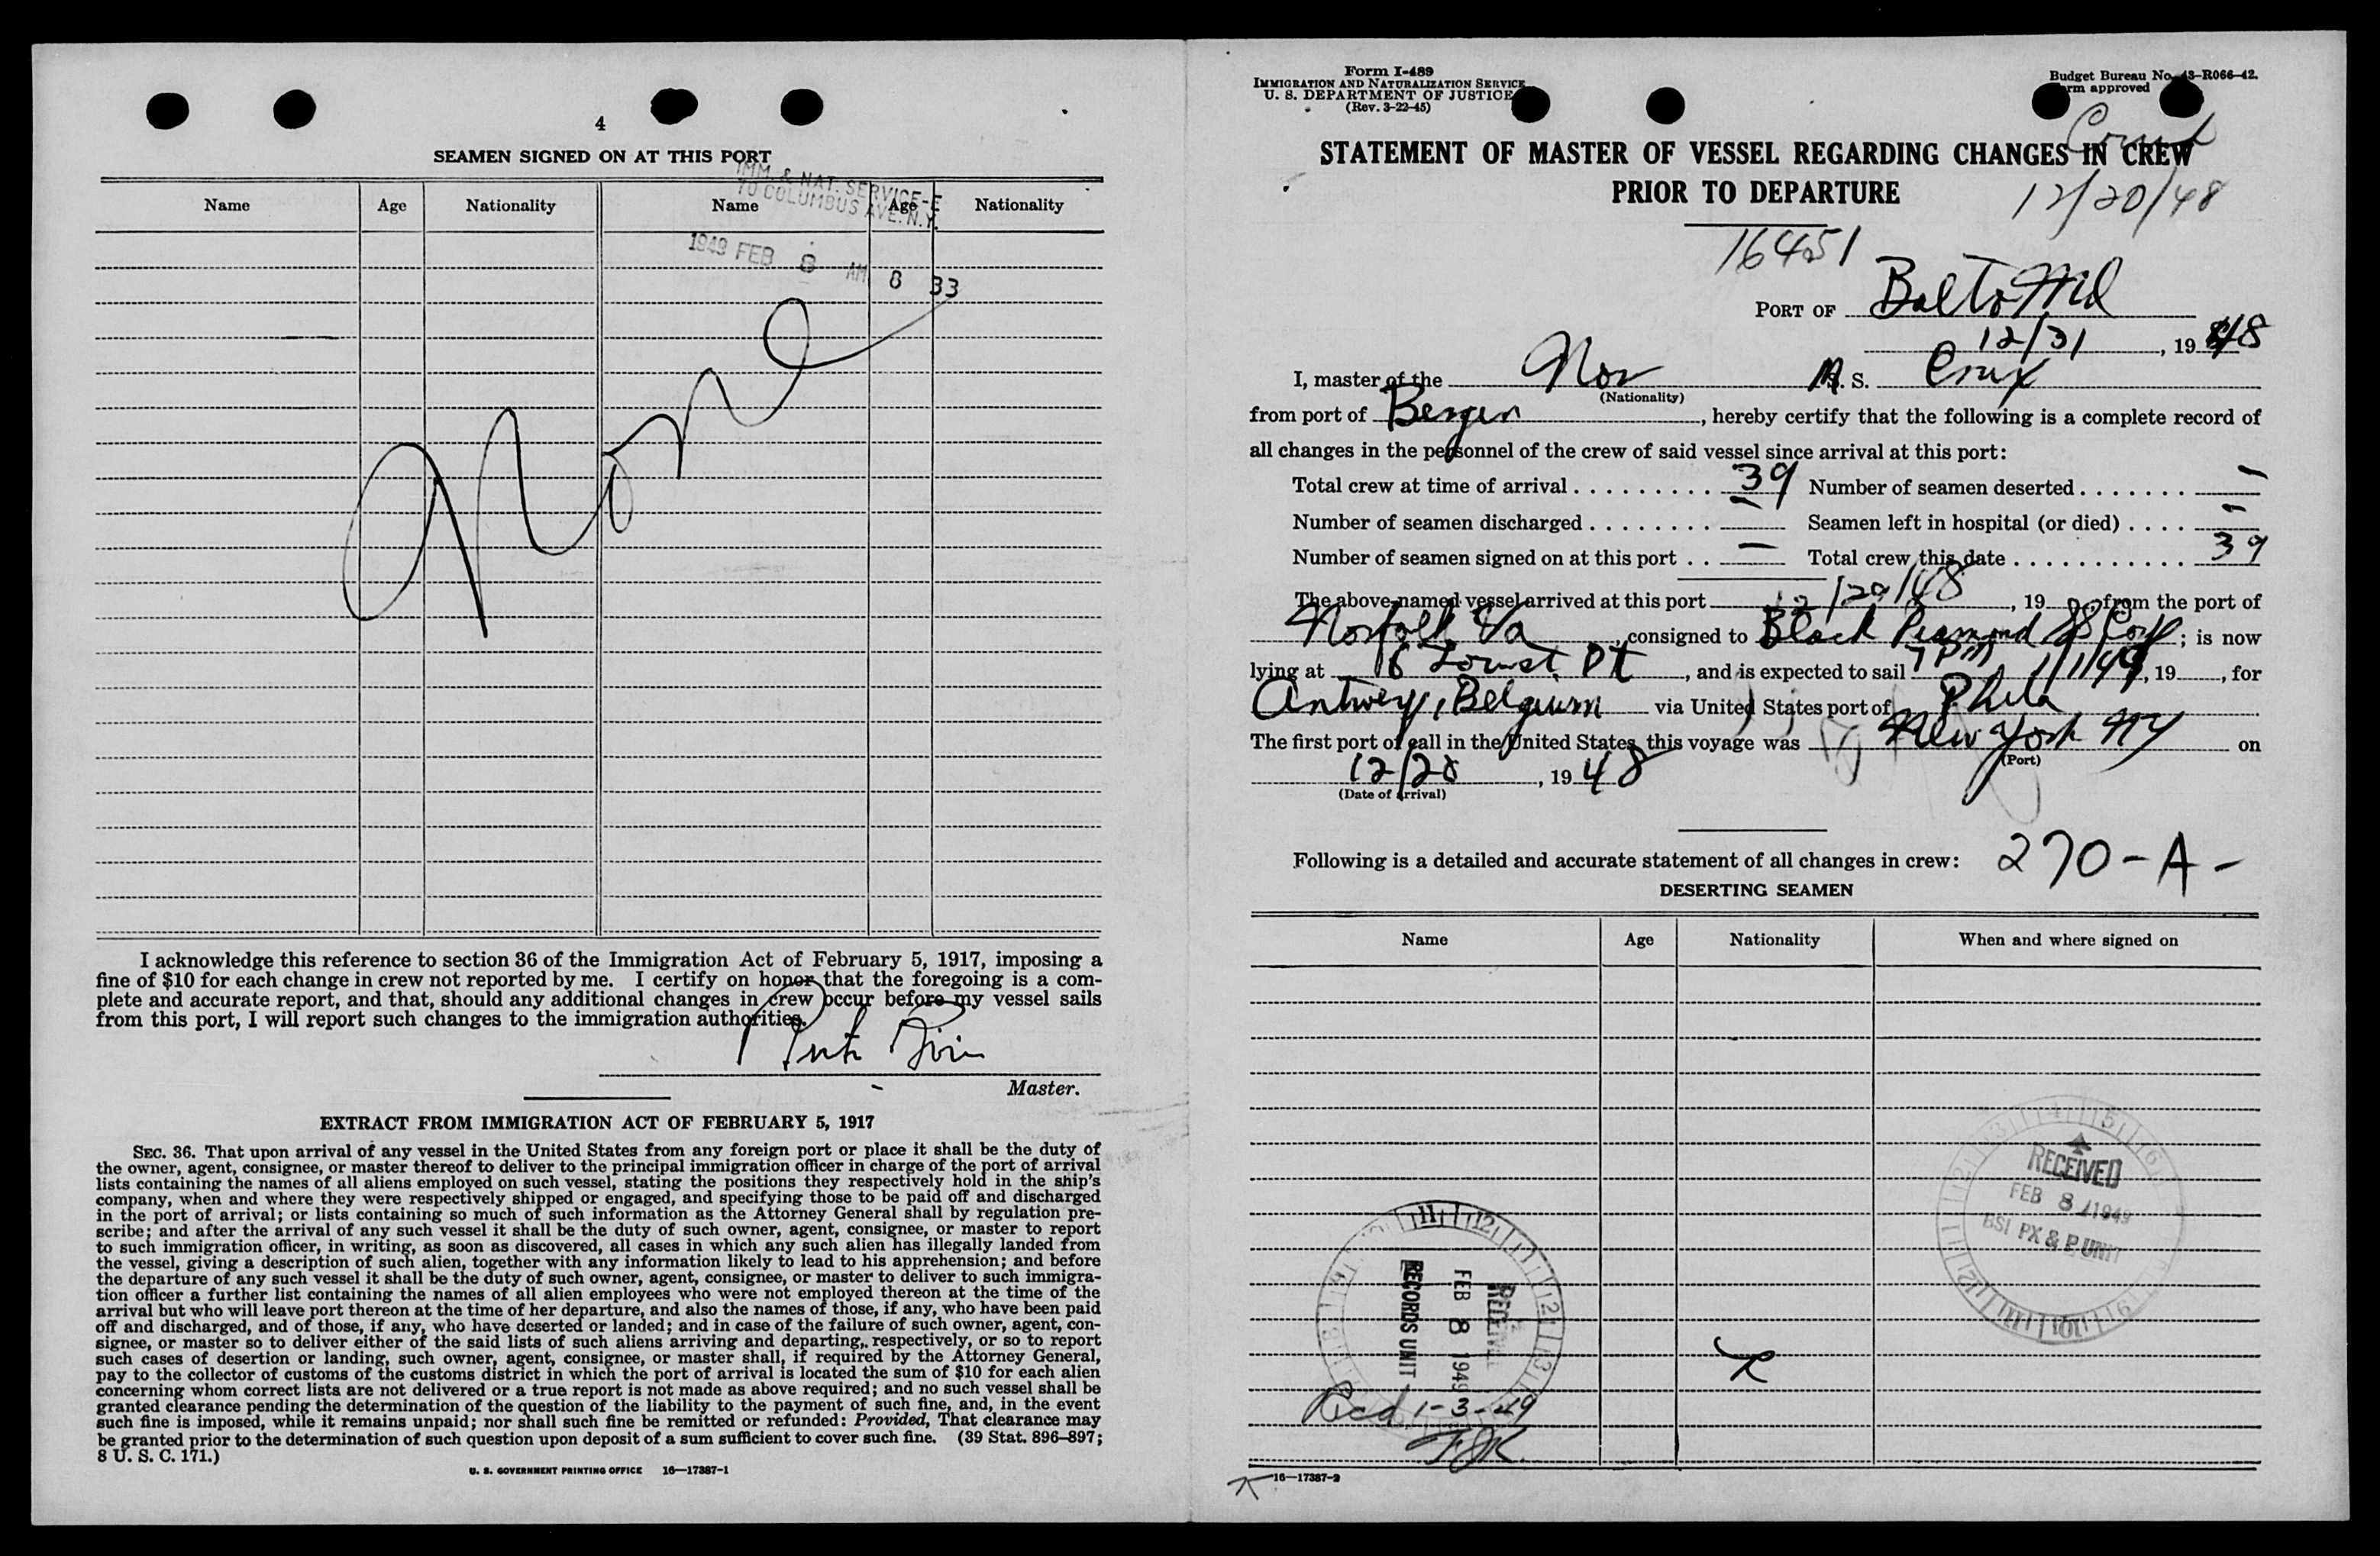 4
SEAMEN SIGNED ON AT THIS PORT
IMM. & NAT. SERVICE-E
70 COLUMBUS AVE. N.Y.
Name Age Nationality Name Age Nationality
1949 FEB 8 AM 8 33
None
I acknowledge this reference to section 36 of the Immigration Act of February 5, 1917, imposing a
fine of $10 for each change in crew not reported by me. I certify on honor that the foregoing is a com-
plete and accurate report, and that, should any additional changes in crew occur before my vessel sails
from this port, I will report such changes to the immigration authorities.
Master.
EXTRACT FROM IMMIGRATION ACT OF FEBRUARY 5, 1917
SEC. 36. That upon arrival of any vessel in the United States from any foreign port or place it shall be the duty of
the owner, agent, consignee, or master thereof to deliver to the principal immigration officer in charge of the port of arrival
lists containing the names of all aliens employed on such vessel, stating the positions they respectively hold in the ship's
company, when and where they were respectively shipped or engaged, and specifying those to be paid off and discharged
in the port of arrival; or lists containing so much of such information as the Attorney General shall by regulation pre-
scribe; and after the arrival of any such vessel it shall be the duty of such owner, agent, consignee, or master to report
to such immigration officer, in writing, as soon as discovered, all cases in which any such alien has illegally landed from
the vessel, giving a description of such alien, together with any information likely to lead to his apprehension; and before
the departure of any such vessel it shall be the duty of such owner, agent, consignee, or master to deliver to such immigra-
tion officer a further list containing the names of all alien employees who were not employed thereon at the time of the
arrival but who will leave port thereon at the time of her departure, and also the names of those, if any, who have been paid
off and discharged, and of those, if any, who have deserted or landed; and in case of the failure of such owner, agent, con-
signee, or master so to deliver either of the said lists of such aliens arriving and departing, respectively, or so to report
such cases of desertion or landing, such owner, agent, consignee, or master shall, if required by the Attorney General,
pay to the collector of customs of the customs district in which the port of arrival is located the sum of $10 for each alien
concerning whom correct lists are not delivered or a true report is not made as above required; and no such vessel shall be
granted clearance pending the determination of the question of the liability to the payment of such fine, and, in the event
such fine is imposed, while it remains unpaid; nor shall such fine be remitted or refunded: Provided, That clearance may
be granted prior to the determination of such question upon deposit of a sum sufficient to cover such fine. (39 Stat. 896–897;
8 U. S. C. 171.)
U. S. GOVERNMENT PRINTING OFFICE 16—17387-1
Form I-489
IMMIGRATION AND NATURALIZATION SERVICE
U. S. DEPARTMENT OF JUSTICE
(Rev. 3-22-45)
Budget Bureau No. 43-R066-42.
Form approved
STATEMENT OF MASTER OF VESSEL REGARDING CHANGES IN CREW
PRIOR TO DEPARTURE
12/20/48
16451
PORT OF Balto Md
12/31, 1948
I, master of the Nor M. S. Crux
(Nationality)
from port of Bergen, hereby certify that the following is a complete record of
all changes in the personnel of the crew of said vessel since arrival at this port:
Total crew at time of arrival 39 Number of seamen deserted —
Number of seamen discharged — Seamen left in hospital (or died) —
Number of seamen signed on at this port — Total crew this date 39
The above-named vessel arrived at this port 12/29/48, 19 from the port of
Norfolk Va, consigned to Black Diamond SS Corp; is now
lying at 6 Locust Pt, and is expected to sail 7 PM 1/1/49, 19, for
Antwerp, Belgium via United States port of Phila
The first port of call in the United States this voyage was New York NY on
(Port)
12/20, 1948
(Date of arrival)
Following is a detailed and accurate statement of all changes in crew: 270-A-
DESERTING SEAMEN
Name Age Nationality When and where signed on
RECEIVED
FEB 8 1949
BSI PX & P UNIT
RECEIVED
FEB 8 1949
RECORDS UNIT
Recd 1-3-49
16—17387-2